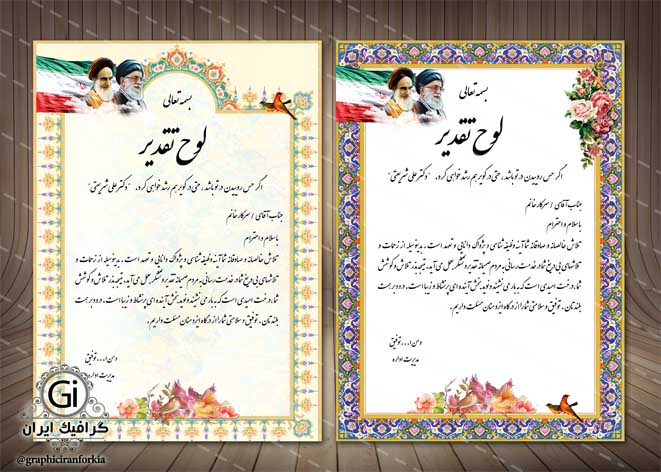 بسمه تعالی
لوح تقدیر
اگر حس روییدن در تو باشد، حتی در کویر هم رشد خواهی کرد. "دکتر علی شریعتی"
جناب آقای / سرکار خانم
با سلام و احترام
تلاش خالصانه و صادقانه شما آینه وظیفه شناسی و پژواک دانایی و تعهد است. بدینوسیله از زحمات و
تلاشهای بی دریغ شما در خدمت رسانی به مردم صمیمانه تقدیر و تشکر بعمل می آید. نتیجه بذر تلاش و کوشش
شما درخت امیدی است که به بار می نشیند و نوید بخش آینده ای پرنشاط و زیباست. درود بر همت
بلندتان. توفیق و سلامتی شما را از درگاه ایزد منان مسئلت داریم.
و من ا... توفیق
مدیریت اداره
بسمه تعالی
لوح تقدیر
اگر حس روییدن در تو باشد، حتی در کویر هم رشد خواهی کرد. "دکتر علی شریعتی"
جناب آقای / سرکار خانم
با سلام و احترام
تلاش خالصانه و صادقانه شما آینه وظیفه شناسی و پژواک دانایی و تعهد است. بدینوسیله از زحمات و
تلاشهای بی دریغ شما در خدمت رسانی به مردم صمیمانه تقدیر و تشکر بعمل می آید. نتیجه بذر تلاش و کوشش
شما درخت امیدی است که به بار می نشیند و نوید بخش آینده ای پرنشاط و زیباست. درود بر همت
بلندتان. توفیق و سلامتی شما را از درگاه ایزد منان مسئلت داریم.
و من ا... توفیق
مدیریت اداره
Gi
گرافیک ایران
@graphiciranforkia